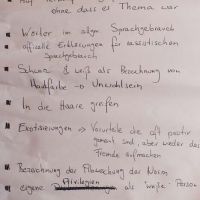 ohne dass es Thema war
Wörter im allgm. Sprachgebrauch
offizielle Erklärungen für rassistischen
Sprachgebrauch
Schwarz & weiß als Bezeichnung von
Hautfarbe → Unwohlsein
In die Haare greifen
Exotisierungen → Vorurteile die oft positiv
gemeint sind, aber wieder das
Fremde aufmachen
Bezeichnung der Abweichung der Norm
Privilegien
eigene als weiße Person